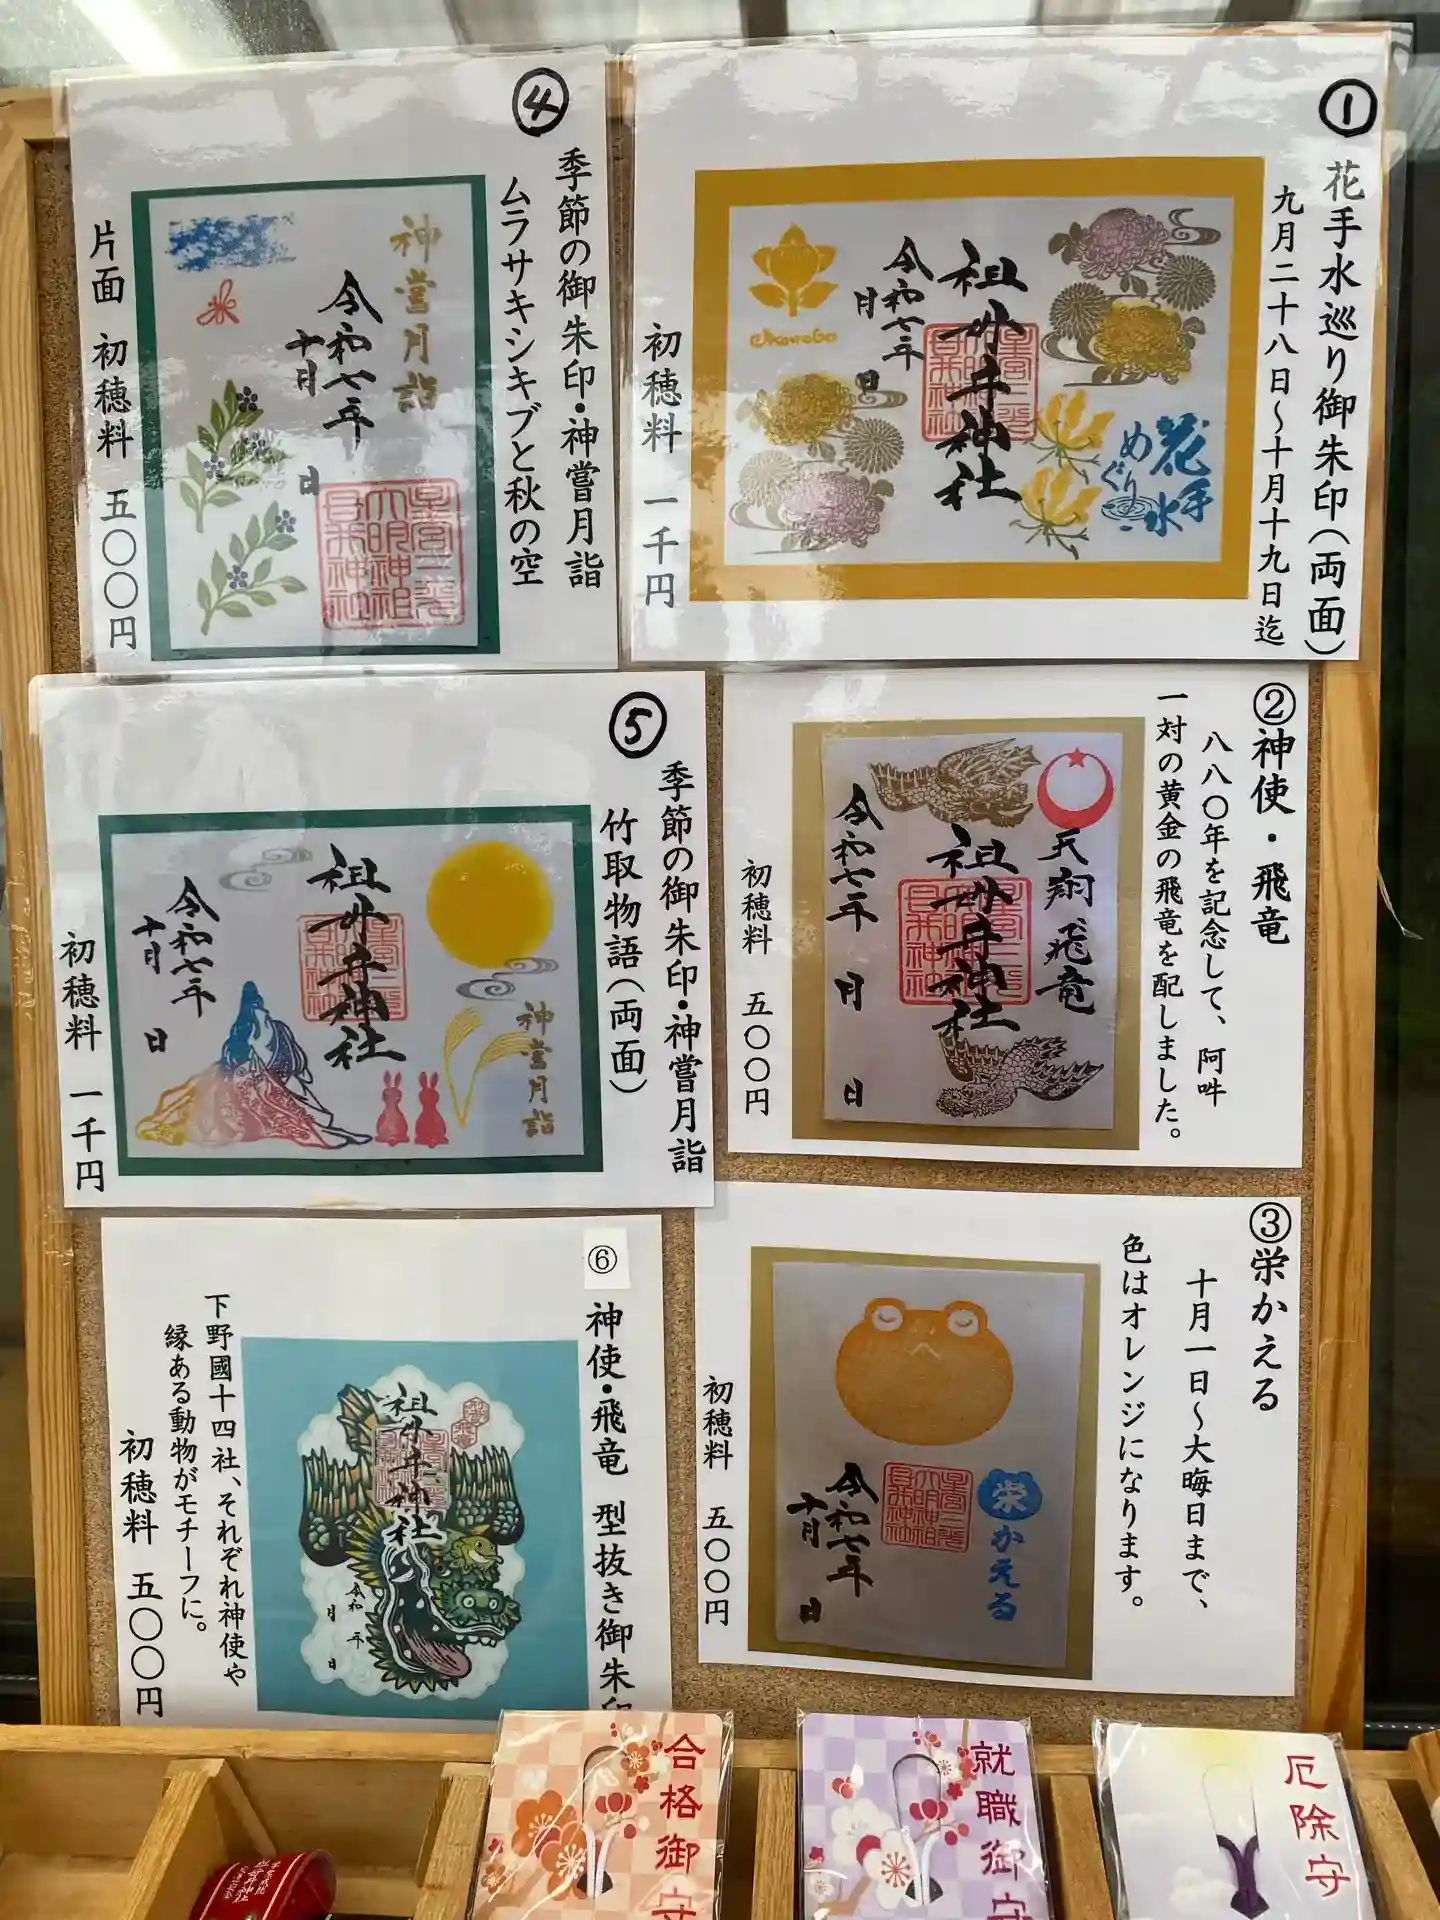 ①
花手水巡り御朱印(両面)
九月二十八日〜十月十九日迄
花手水
めぐり
祖母井神社
令和七年
月
日
初穂料 一千円
②神使・飛竜
八八〇年を記念して、阿吽
一対の黄金の飛竜を配しました。
天翔飛竜
祖母井神社
令和七年 月 日
初穂料 五〇〇円
③栄かえる
十月一日〜大晦日まで、
色はオレンジになります。
栄かえる
令和七年
十月 日
初穂料 五〇〇円
④
季節の御朱印・神嘗月詣
ムラサキシキブと秋の空
神嘗月詣
令和七年
十月 日
片面 初穂料 五〇〇円
⑤
季節の御朱印・神嘗月詣
竹取物語(両面)
神嘗月詣
祖母井神社
令和七年
十月 日
初穂料 一千円
⑥
神使・飛竜 型抜き御朱印
祖母井神社
令和 年
月 日
下野國十四社、それぞれ神使や
縁ある動物がモチーフに。
初穂料 五〇〇円
合格御守
就職御守
厄除守